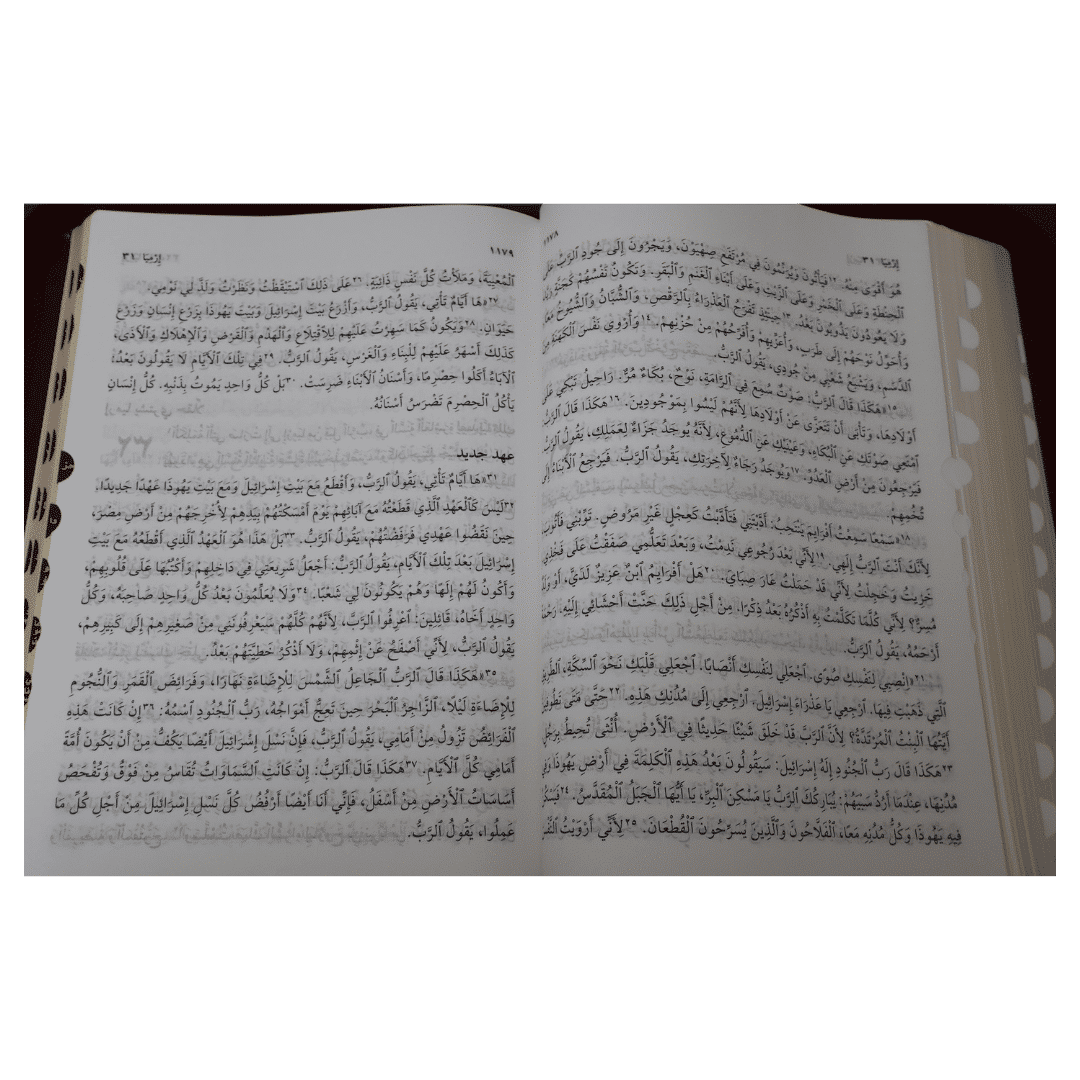 إِرْمِيَا ٣١
١١٧٨
هُوَ أَقْوَى مِنْهُ. ١٢فَيَأْتُونَ وَيُرَنِّمُونَ فِي مُرْتَفَعِ صِهْيَوْنَ، وَيَجْرُونَ إِلَى جُودِ ٱلرَّبِّ عَلَى
ٱلْحِنْطَةِ وَعَلَى ٱلْخَمْرِ وَعَلَى ٱلزَّيْتِ وَعَلَى أَبْنَاءِ ٱلْغَنَمِ وَٱلْبَقَرِ. وَتَكُونُ نَفْسُهُمْ كَجَنَّةٍ
وَلَا يَعُودُونَ يَذُوبُونَ بَعْدُ. ١٣حِينَئِذٍ تَفْرَحُ ٱلْعَذْرَاءُ بِٱلرَّقْصِ، وَٱلشُّبَّانُ وَٱلشُّيُوخُ مَعًا.
وَأُحَوِّلُ نَوْحَهُمْ إِلَى طَرَبٍ، وَأُعَزِّيهِمْ وَأُفَرِّحُهُمْ مِنْ حُزْنِهِمْ. ١٤وَأُرْوِي نَفْسَ ٱلْكَهَنَةِ مِنَ
ٱلدَّسَمِ، وَيَشْبَعُ شَعْبِي مِنْ جُودِي، يَقُولُ ٱلرَّبُّ.
١٥«هَكَذَا قَالَ ٱلرَّبُّ: صَوْتٌ سُمِعَ فِي ٱلرَّامَةِ، نَوْحٌ، بُكَاءٌ مُرٌّ. رَاحِيلُ تَبْكِي عَلَى
أَوْلَادِهَا، وَتَأْبَى أَنْ تَتَعَزَّى عَنْ أَوْلَادِهَا لِأَنَّهُمْ لَيْسُوا بِمَوْجُودِينَ. ١٦هَكَذَا قَالَ ٱلرَّبُّ:
ٱمْنَعِي صَوْتَكِ عَنِ ٱلْبُكَاءِ، وَعَيْنَيْكِ عَنِ ٱلدُّمُوعِ، لِأَنَّهُ يُوجَدُ جَزَاءٌ لِعَمَلِكِ، يَقُولُ ٱلرَّبُّ.
فَيَرْجِعُونَ مِنْ أَرْضِ ٱلْعَدُوِّ. ١٧وَيُوجَدُ رَجَاءٌ لِآخِرَتِكِ، يَقُولُ ٱلرَّبُّ. فَيَرْجِعُ ٱلْأَبْنَاءُ إِلَى
تُخْمِهِمْ.
١٨«سَمْعًا سَمِعْتُ أَفْرَايِمَ يَنْتَحِبُ: أَدَّبْتَنِي فَتَأَدَّبْتُ كَعِجْلٍ غَيْرِ مَرُوضٍ. تَوِّبْنِي فَأَتُوبَ،
لِأَنَّكَ أَنْتَ ٱلرَّبُّ إِلَهِي. ١٩لِأَنِّي بَعْدَ رُجُوعِي نَدِمْتُ، وَبَعْدَ تَعَلُّمِي صَفَقْتُ عَلَى فَخْذِي.
خَزِيتُ وَخَجِلْتُ لِأَنِّي قَدْ حَمَلْتُ عَارَ صِبَايَ. ٢٠هَلْ أَفْرَايِمُ ٱبْنٌ عَزِيزٌ لَدَيَّ، أَوْ وَلَدٌ
مُسِرٌّ؟ لِأَنِّي كُلَّمَا تَكَلَّمْتُ بِهِ أَذْكُرُهُ بَعْدُ ذِكْرًا. مِنْ أَجْلِ ذَلِكَ حَنَّتْ أَحْشَائِي إِلَيْهِ.
أَرْحَمُهُ، يَقُولُ ٱلرَّبُّ.
٢١«اِنْصِبِي لِنَفْسِكِ صُوًى. ٱجْعَلِي لِنَفْسِكِ أَنْصَابًا. ٱجْعَلِي قَلْبَكِ نَحْوَ ٱلسِّكَّةِ، ٱلطَّرِيقِ
ٱلَّتِي ذَهَبْتِ فِيهَا. ٱرْجِعِي يَا عَذْرَاءَ إِسْرَائِيلَ. ٱرْجِعِي إِلَى مُدُنِكِ هَذِهِ. ٢٢حَتَّى مَتَى تَطُوفِينَ
أَيَّتُهَا ٱلْبِنْتُ ٱلْمُرْتَدَّةُ؟ لِأَنَّ ٱلرَّبَّ قَدْ خَلَقَ شَيْئًا حَدِيثًا فِي ٱلْأَرْضِ. أُنْثَى تُحِيطُ بِرَجُلٍ.
٢٣هَكَذَا قَالَ رَبُّ ٱلْجُنُودِ إِلَهُ إِسْرَائِيلَ: سَيَقُولُونَ بَعْدُ هَذِهِ ٱلْكَلِمَةَ فِي أَرْضِ يَهُوذَا وَفِي
مُدُنِهَا، عِنْدَمَا أَرُدُّ سَبْيَهُمْ: يُبَارِكُكَ ٱلرَّبُّ يَا مَسْكِنَ ٱلْبِرِّ، يَا أَيُّهَا ٱلْجَبَلُ ٱلْمُقَدَّسُ.
فِيهِ يَهُوذَا وَكُلُّ مُدُنِهِ مَعًا، ٱلْفَلَّاحُونَ وَٱلَّذِينَ يُسَرِّحُونَ ٱلْقُطْعَانَ. ٢٥لِأَنِّي أَرْوَيْتُ ٱلنَّفْسَ
١١٧٩
إِرْمِيَا ٣١
ٱلْمُعْيِيَةَ، وَمَلَأْتُ كُلَّ نَفْسٍ ذَائِبَةٍ. ٢٦عَلَى ذَلِكَ ٱسْتَيْقَظْتُ وَنَظَرْتُ وَلَذَّ لِي نَوْمِي.
٢٧«هَا أَيَّامٌ تَأْتِي، يَقُولُ ٱلرَّبُّ، وَأَزْرَعُ بَيْتَ إِسْرَائِيلَ وَبَيْتَ يَهُوذَا بِزَرْعِ إِنْسَانٍ وَزَرْعِ
حَيَوَانٍ. ٢٨وَيَكُونُ كَمَا سَهِرْتُ عَلَيْهِمْ لِلِٱقْتِلَاعِ وَٱلْهَدْمِ وَٱلْقَرْضِ وَٱلْإِهْلَاكِ وَٱلْأَذَى،
كَذَلِكَ أَسْهَرُ عَلَيْهِمْ لِلْبِنَاءِ وَٱلْغَرْسِ، يَقُولُ ٱلرَّبُّ. ٢٩فِي تِلْكَ ٱلْأَيَّامِ لَا يَقُولُونَ بَعْدُ:
ٱلْآبَاءُ أَكَلُوا حِصْرِمًا، وَأَسْنَانُ ٱلْأَبْنَاءِ ضَرِسَتْ. ٣٠بَلْ كُلُّ وَاحِدٍ يَمُوتُ بِذَنْبِهِ. كُلُّ إِنْسَانٍ
يَأْكُلُ ٱلْحِصْرِمَ تَضْرَسُ أَسْنَانُهُ.
عهد جديد
٣١«هَا أَيَّامٌ تَأْتِي، يَقُولُ ٱلرَّبُّ، وَأَقْطَعُ مَعَ بَيْتِ إِسْرَائِيلَ وَمَعَ بَيْتِ يَهُوذَا عَهْدًا جَدِيدًا.
٣٢لَيْسَ كَٱلْعَهْدِ ٱلَّذِي قَطَعْتُهُ مَعَ آبَائِهِمْ يَوْمَ أَمْسَكْتُهُمْ بِيَدِهِمْ لِأُخْرِجَهُمْ مِنْ أَرْضِ مِصْرَ،
حِينَ نَقَضُوا عَهْدِي فَرَفَضْتُهُمْ، يَقُولُ ٱلرَّبُّ. ٣٣بَلْ هَذَا هُوَ ٱلْعَهْدُ ٱلَّذِي أَقْطَعُهُ مَعَ بَيْتِ
إِسْرَائِيلَ بَعْدَ تِلْكَ ٱلْأَيَّامِ، يَقُولُ ٱلرَّبُّ: أَجْعَلُ شَرِيعَتِي فِي دَاخِلِهِمْ وَأَكْتُبُهَا عَلَى قُلُوبِهِمْ،
وَأَكُونُ لَهُمْ إِلَهًا وَهُمْ يَكُونُونَ لِي شَعْبًا. ٣٤وَلَا يُعَلِّمُونَ بَعْدُ كُلُّ وَاحِدٍ صَاحِبَهُ، وَكُلُّ
وَاحِدٍ أَخَاهُ، قَائِلِينَ: ٱعْرِفُوا ٱلرَّبَّ، لِأَنَّهُمْ كُلَّهُمْ سَيَعْرِفُونَنِي مِنْ صَغِيرِهِمْ إِلَى كَبِيرِهِمْ،
يَقُولُ ٱلرَّبُّ، لِأَنِّي أَصْفَحُ عَنْ إِثْمِهِمْ، وَلَا أَذْكُرُ خَطِيَّتَهُمْ بَعْدُ.
٣٥«هَكَذَا قَالَ ٱلرَّبُّ ٱلْجَاعِلُ ٱلشَّمْسَ لِلْإِضَاءَةِ نَهَارًا، وَفَرَائِضَ ٱلْقَمَرِ وَٱلنُّجُومِ
لِلْإِضَاءَةِ لَيْلًا، ٱلزَّاجِرُ ٱلْبَحْرَ حِينَ تَعِجُّ أَمْوَاجُهُ، رَبُّ ٱلْجُنُودِ ٱسْمُهُ: ٣٦إِنْ كَانَتْ هَذِهِ
ٱلْفَرَائِضُ تَزُولُ مِنْ أَمَامِي، يَقُولُ ٱلرَّبُّ، فَإِنَّ نَسْلَ إِسْرَائِيلَ أَيْضًا يَكُفُّ مِنْ أَنْ يَكُونَ أُمَّةً
أَمَامِي كُلَّ ٱلْأَيَّامِ. ٣٧هَكَذَا قَالَ ٱلرَّبُّ: إِنْ كَانَتِ ٱلسَّمَاوَاتُ تُقَاسُ مِنْ فَوْقُ وَتُفْحَصُ
أَسَاسَاتُ ٱلْأَرْضِ مِنْ أَسْفَلُ، فَإِنِّي أَنَا أَيْضًا أَرْفُضُ كُلَّ نَسْلِ إِسْرَائِيلَ مِنْ أَجْلِ كُلِّ مَا
عَمِلُوا، يَقُولُ ٱلرَّبُّ.